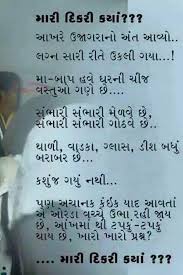 મારી દિકરી કયાં???
આખરે ઉજાગરાનો અંત આવ્યો..
લગ્ન સારી રીતે ઉકલી ગયા...!
મા-બાપ હવે ઘરની ચીજ
વસ્તુઓ ગણે છે....
સંભારી સંભારી મેળવે છે,
સંભારી સંભારી ગોઠવે છે..
થાળી, વાડકા, ગ્લાસ, ડીશ બધું
બરાબર છે...
કશુંજ ગયું નથી...
પણ અચાનક કંઈક યાદ આવતાં
બે ઓરડા વચ્ચે ઉભા રહી જાય
છે, આંખમાં થી ટપકું-ટપકું
થાય છે, ખારો ખારો પ્રશ્ન?
.... મારી દિકરી કયાં ???